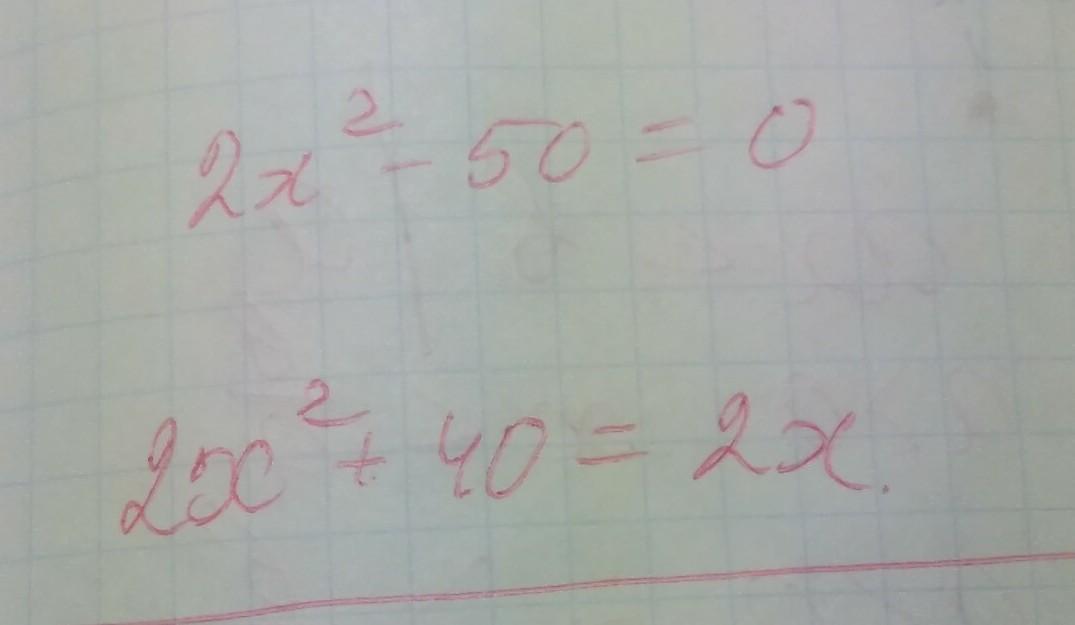 2x² - 50 = 0
2x² + 40 = 2x.